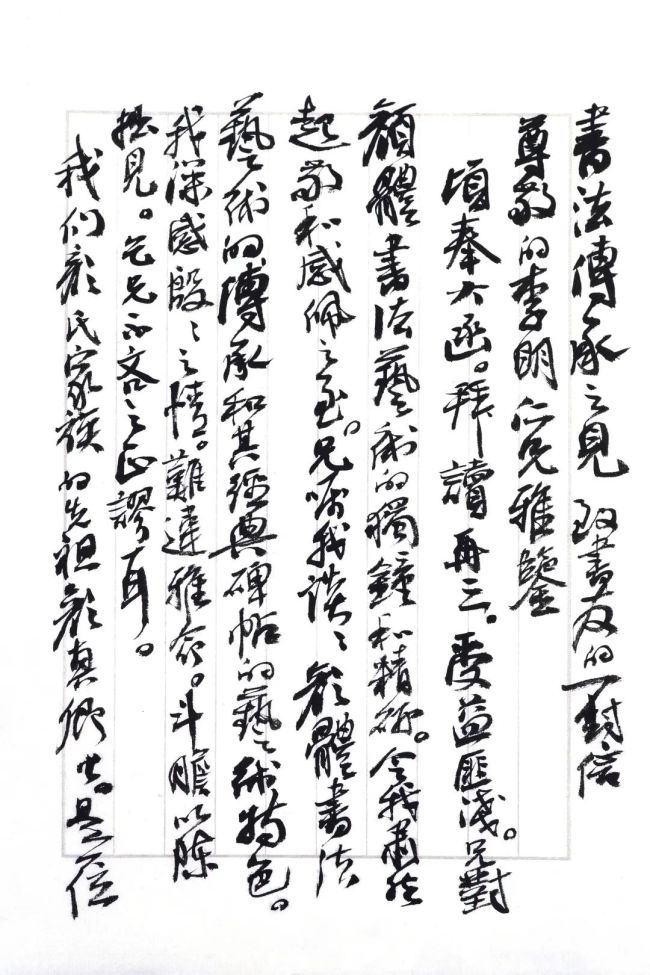 書法傳承之見 致書友的一封信
尊敬的李明仁兄雅鑒
頃奉大函。拜讀再三。受益匪淺。兄對
顏體書法藝術的獨鐘和精研。令我肅然
起敬和感佩之至。兄囑我談談顏體書法
藝術的傳承和其經典碑帖的藝術特色。
我深感殷殷之情。難違雅命。斗膽以陳
拙見。乞兄不吝之正謬耳。
我们顏氏家族的先祖顏真卿公。是一位